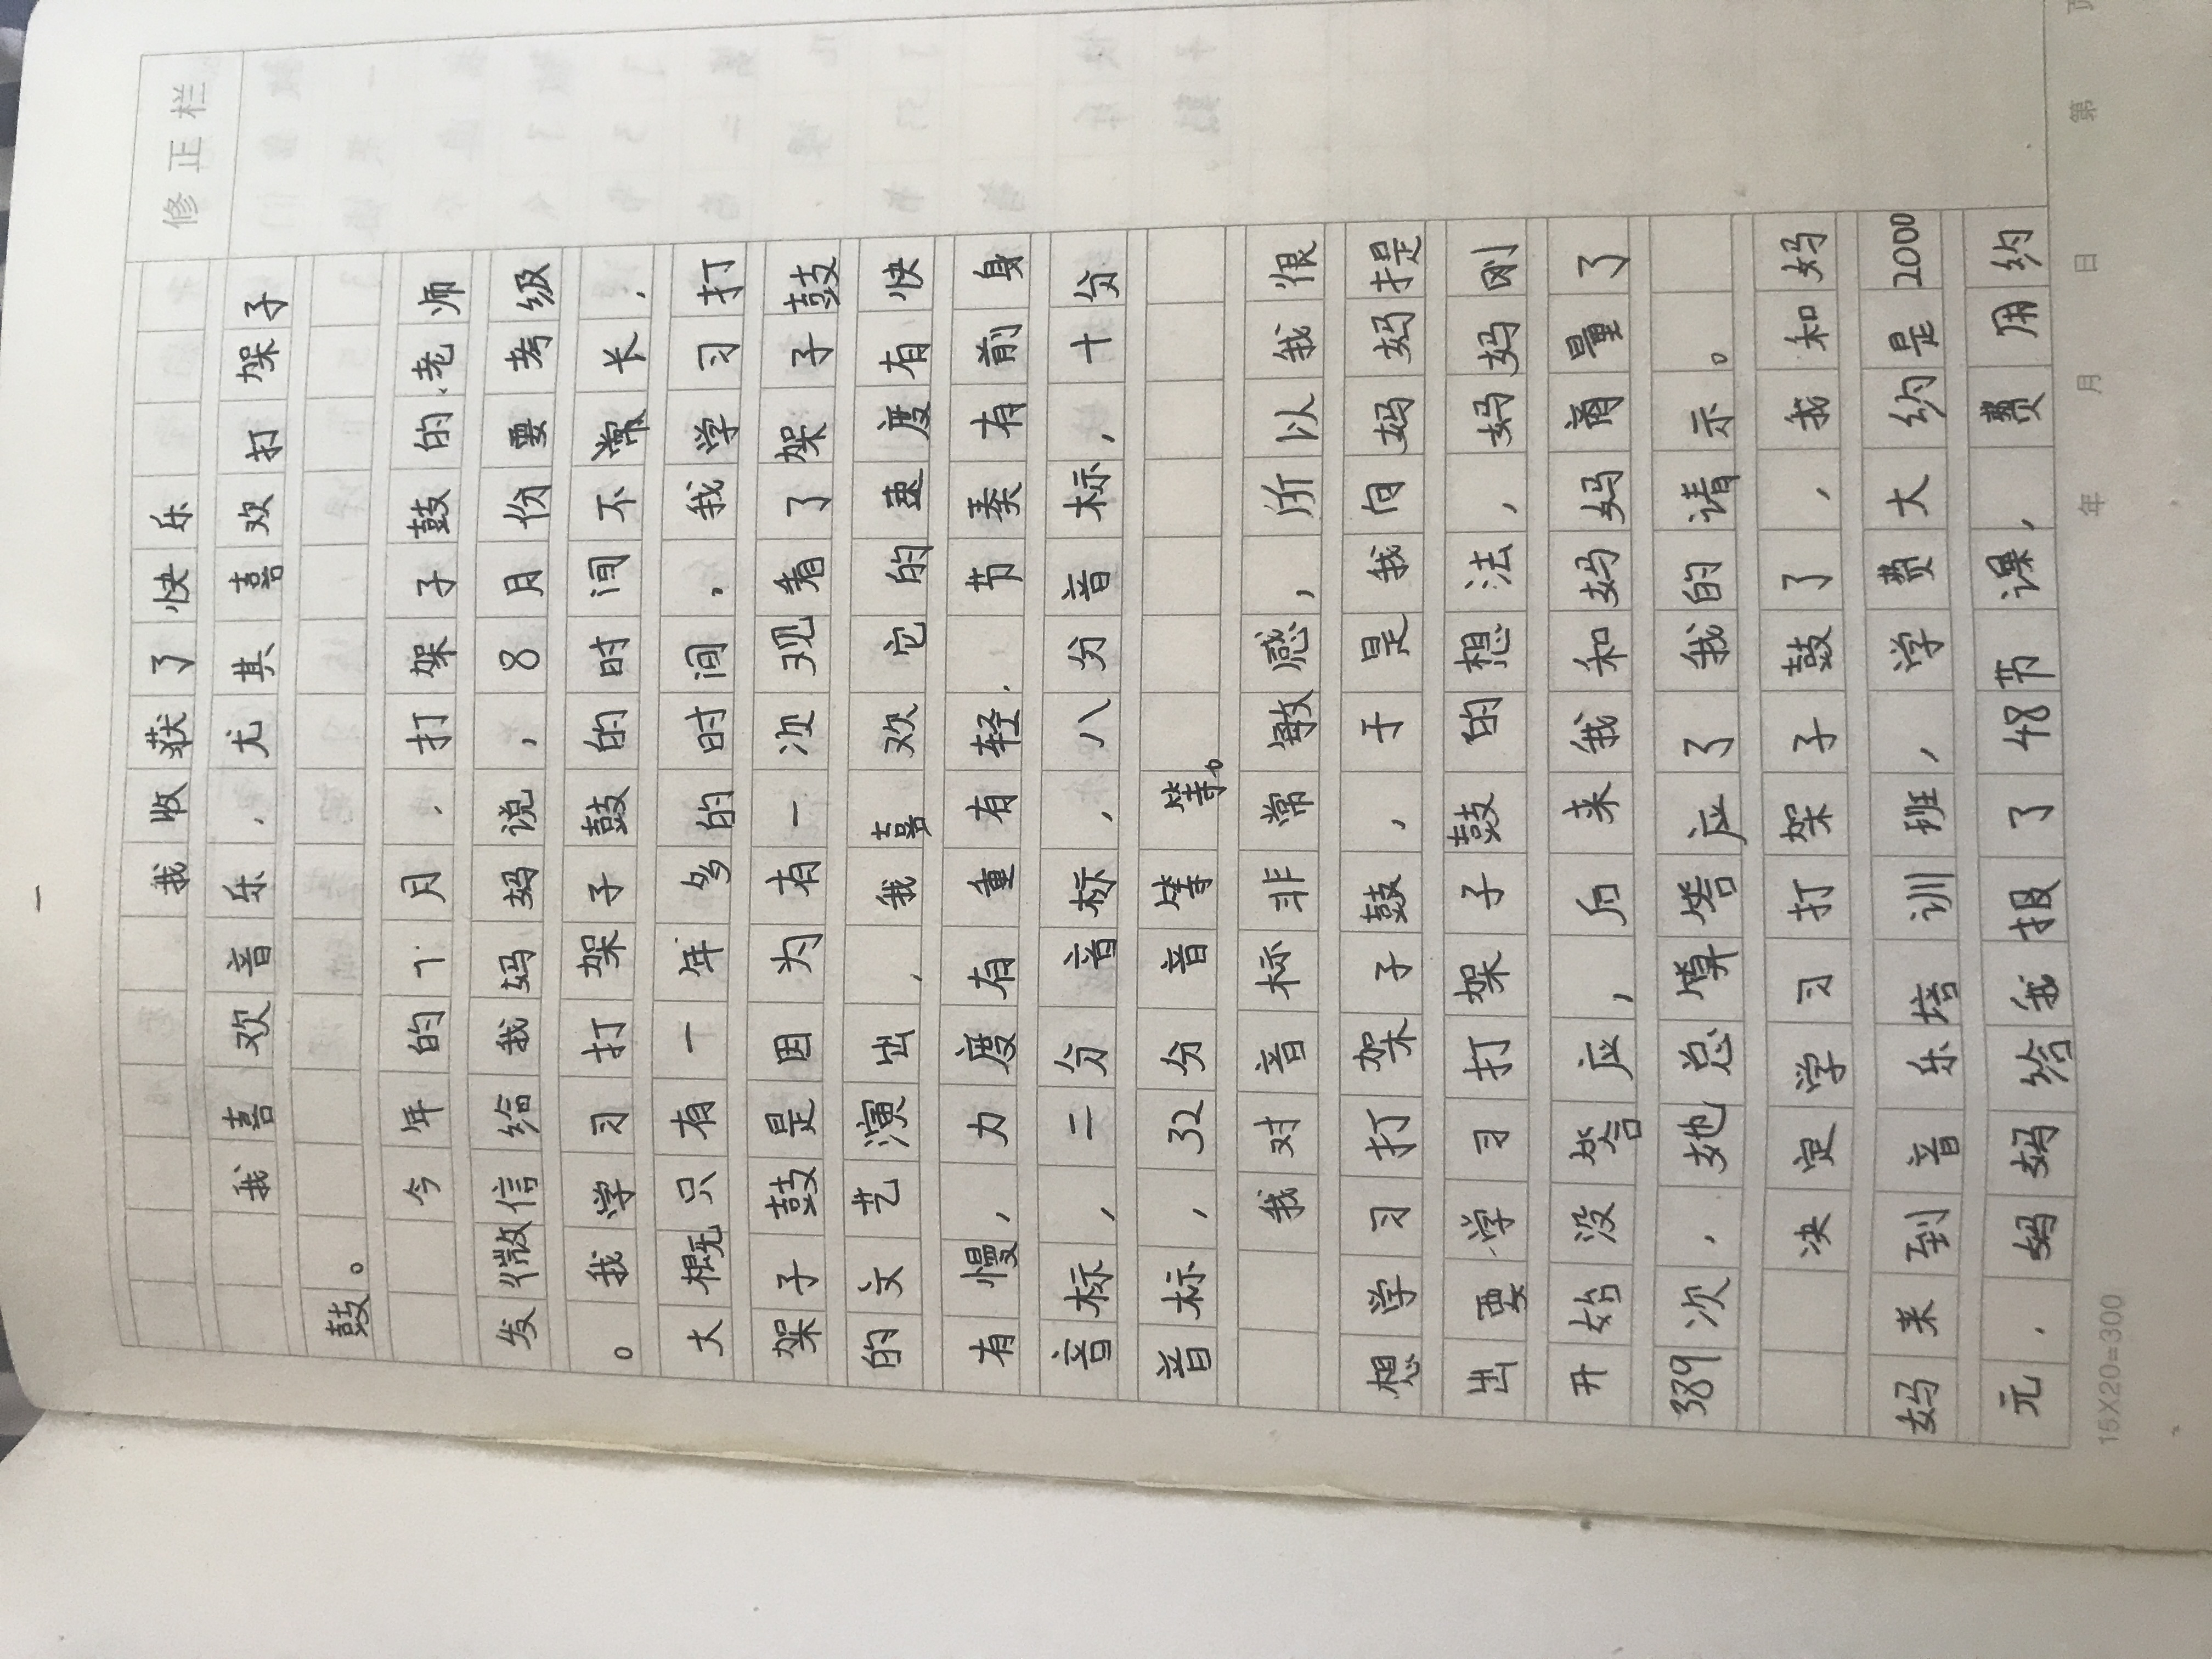 一
修正栏
我收获了快乐
我喜欢音乐,尤其喜欢打架子
鼓。
今年的7月,打架子鼓的老师
发微信给我妈妈说,8月份要考级
。我学习打架子鼓的时间不常长,
大概只有一年多的时间,我学习打
架子鼓是因为有一次观看了架子鼓
的文艺演出,我喜欢它的速度有快
有慢,力度有重有轻.节奏有前身
音标,二分音标,八分音标,十分
音标,32分音等等。
我对音标非常敏感,所以我很
想学习打架子鼓,于是我向妈妈提
出要学习打架子鼓的想法,妈妈刚
开始没答应,后来我和妈妈商量了
389次,她总算答应了我的请示。
决定学习打架子鼓了,我和妈
妈来到音乐培训班,学费大约是2000
元.妈妈给我报了48节课,费用约
15X20=300
年 月 日 第 页